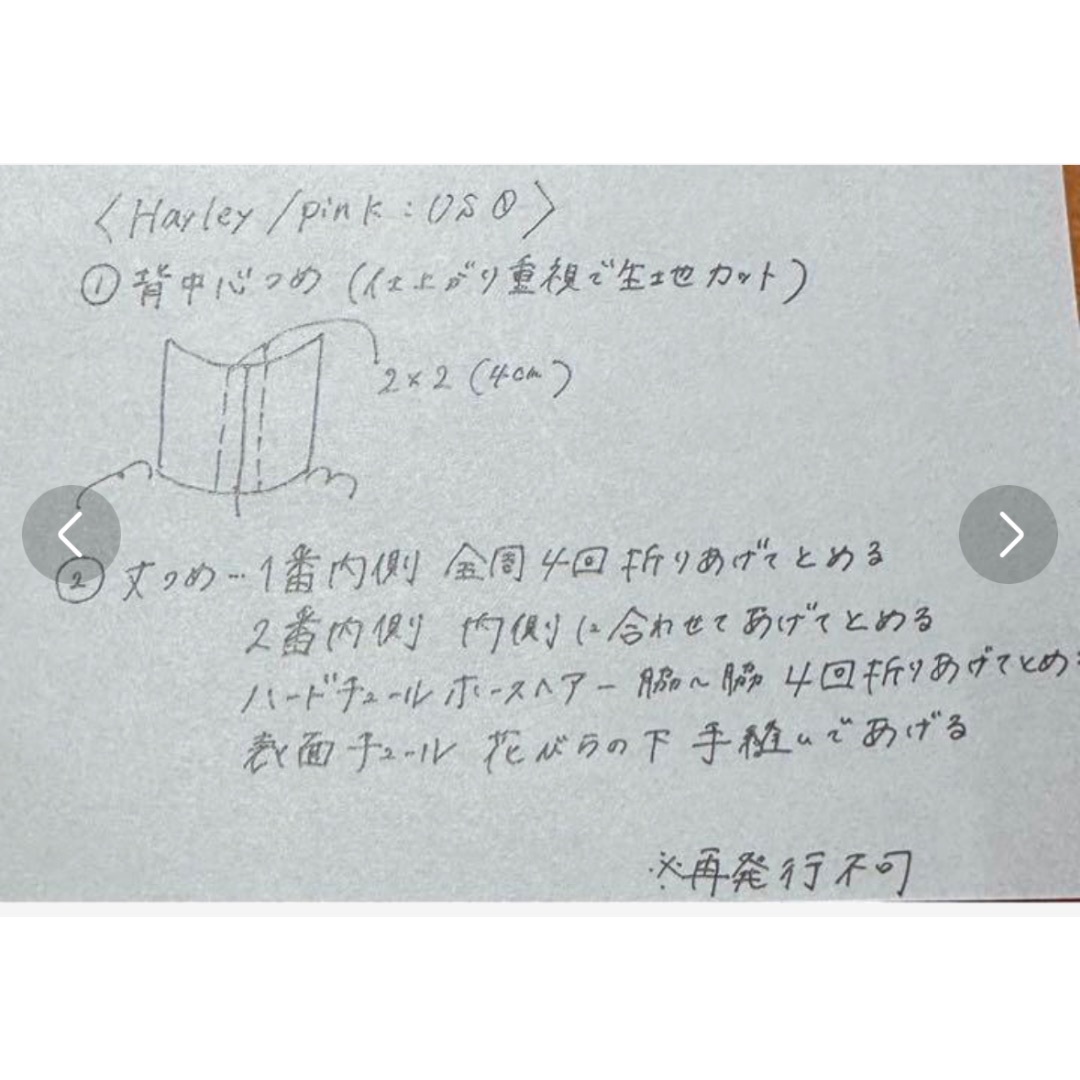 〈Hayley/pink:US⓪〉
①背中心つめ(仕上がり重視で生地カット)
2×2(4cm)
②丈つめ…1番内側 全周4回折りあげてとめる
2番内側 内側に合わせてあげてとめる
ハードチュールホースヘアー脇〜脇 4回折りあげてとめ
表面チュール 花びらの下 手縫いであげる
※再発行不可